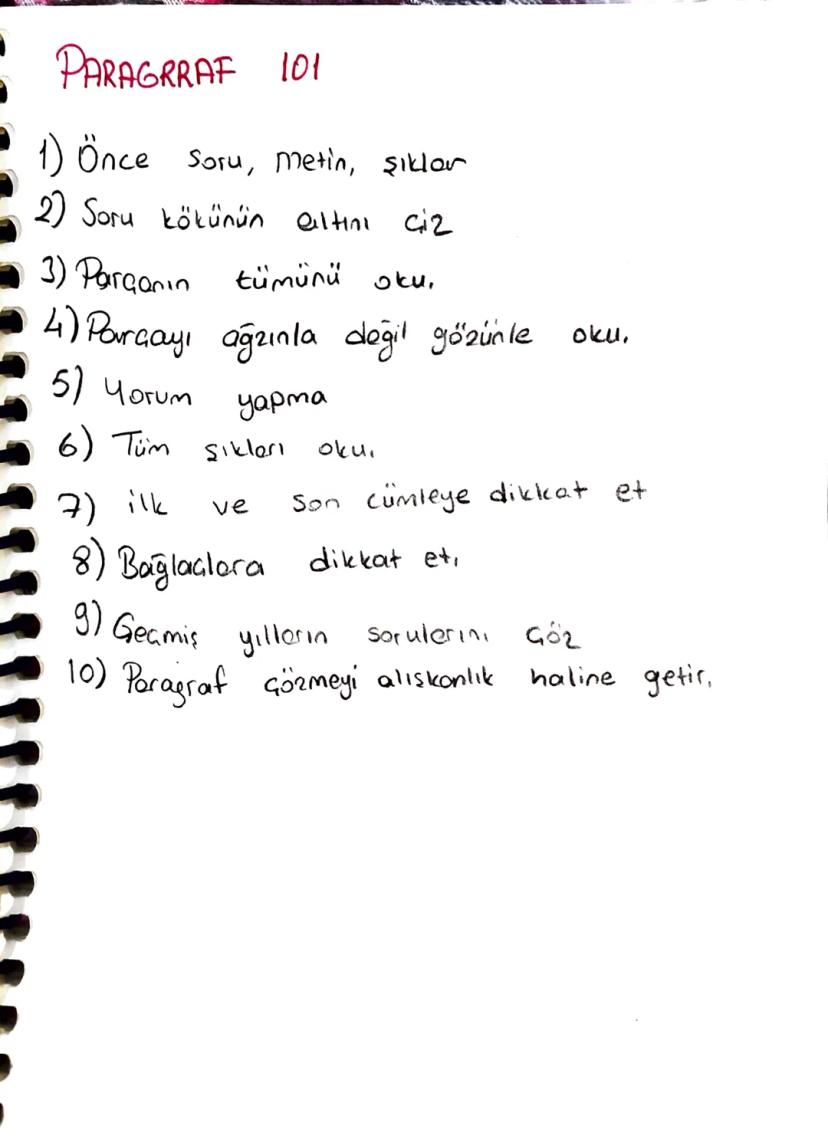 PARAGRRAF 101
1) Önce soru, metin, şıklar
2) Soru kökünün altını çiz
3) Parçanın tümünü oku.
4) Parçayı ağzınla değil gözünle oku.
5) Yorum yapma
6) Tüm şıkları oku.
7) ilk ve son cümleye dikkat et
8) Bağlaçlara dikkat et.
9) Geçmiş yılların sorularını çöz
10) Paragraf çözmeyi alışkanlık haline getir.